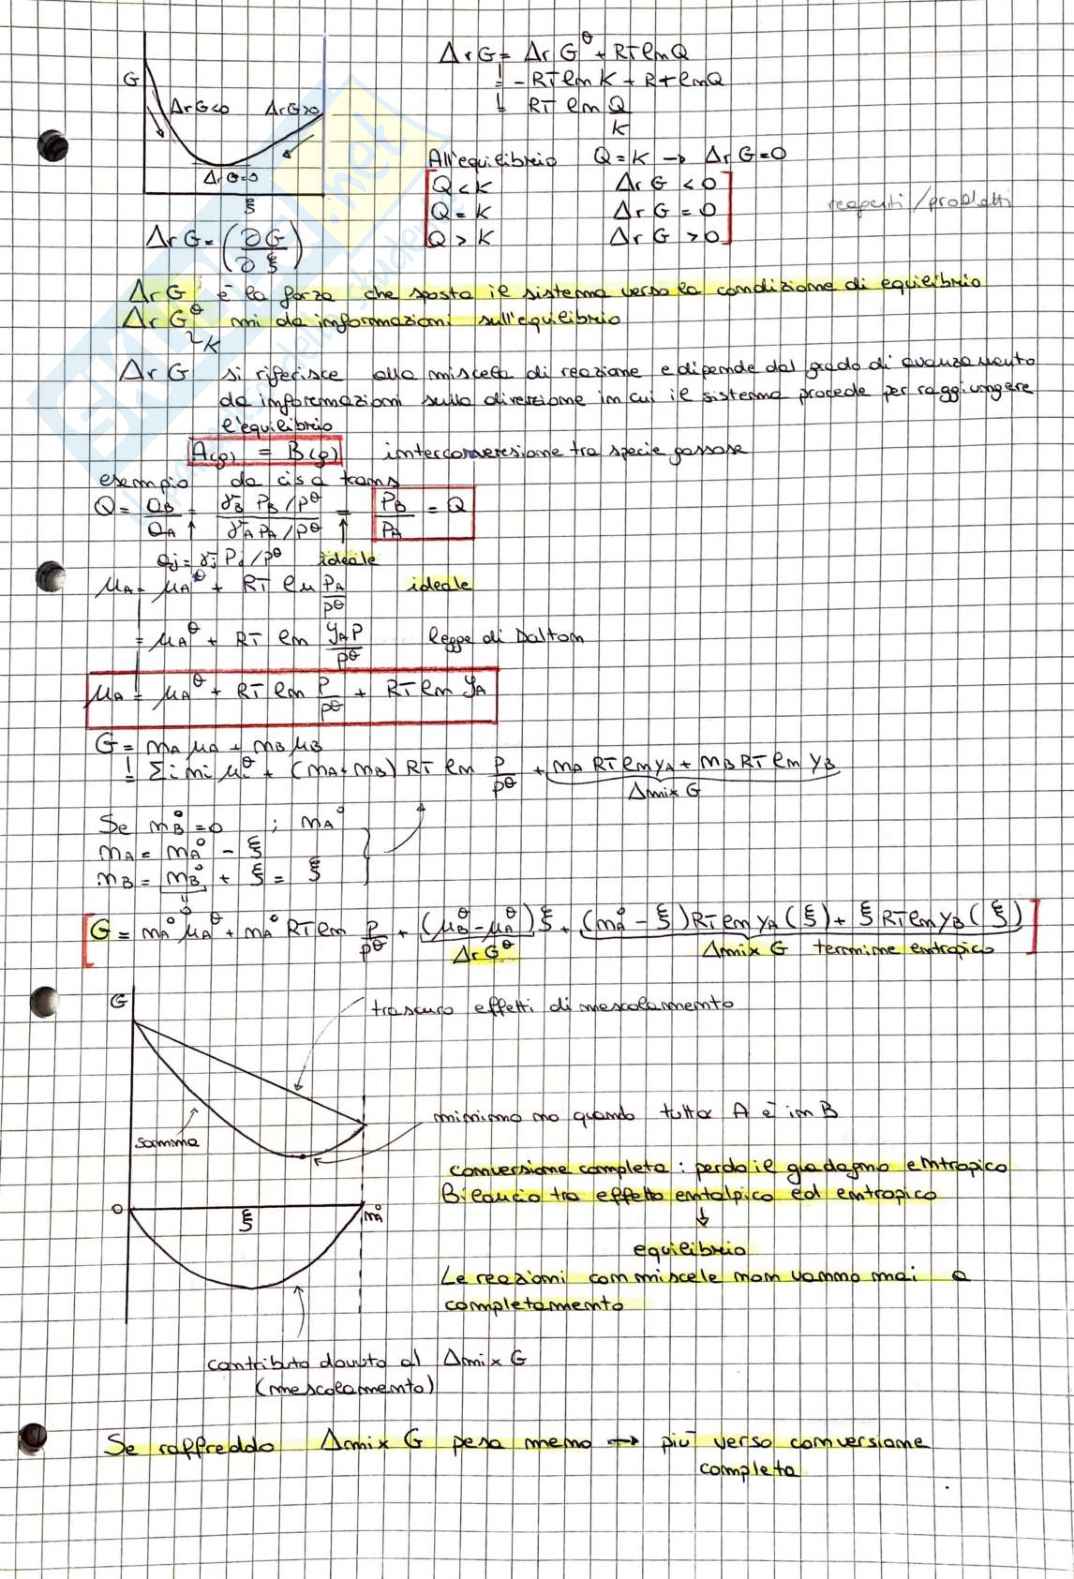 ΔrG = ΔrG^θ + RT ln Q
= -RT ln K + RT ln Q
= RT ln Q/K
G
ΔrG<0
ΔrG>0
ΔrG=0
ξ
All'equilibrio Q = K → ΔrG=0
Q < K ΔrG < 0
Q = K ΔrG = 0
Q > K ΔrG > 0
reagenti/prodotti
ΔrG = (∂G/∂ξ)
ΔrG è la forza che sposta il sistema verso la condizione di equilibrio
ΔrG^θ mi da informazioni sull'equilibrio
K
ΔrG si riferisce alla miscela di reazione e dipende dal grado di avanzamento
da informazioni sulla direzione in cui il sistema procede per raggiungere
l'equilibrio
A(g) = B(g) interconversione tra specie gassose
esempio da cis a trans
Q = aB/aA = γB PB/P^θ / γA PA/P^θ = PB/PA = Q
aj = γj Pj/P^θ ideale
μA = μA^θ + RT ln PA/P^θ ideale
= μA^θ + RT ln yAP/P^θ legge di Dalton
μA = μA^θ + RT ln P/P^θ + RT ln yA
G = nA μA + nB μB
= Σi ni μi^θ + (nA + nB) RT ln P/P^θ + nA RT ln yA + nB RT ln yB
Δmix G
Se nB° = 0 ; nA°
nA = nA° - ξ
nB = nB° + ξ = ξ
0
G = nA° μA^θ + nA° RT ln P/P^θ + (μB^θ - μA^θ) ξ + (nA° - ξ) RT ln yA(ξ) + ξ RT ln yB(ξ)
ΔrG^θ Δmix G termine entropico
G
trascuro effetti di mescolamento
minimo no quando tutto A è in B
somma
conversione completa : perdo il guadagno entropico
Bilancio tra effetto entalpico ed entropico
↓
0 ξ nA°
equilibrio
Le reazioni con miscele non vanno mai a
completamento
contributo dovuto al Δmix G
(mescolamento)
Se raffreddo Δmix G pesa meno → più verso conversione
completa